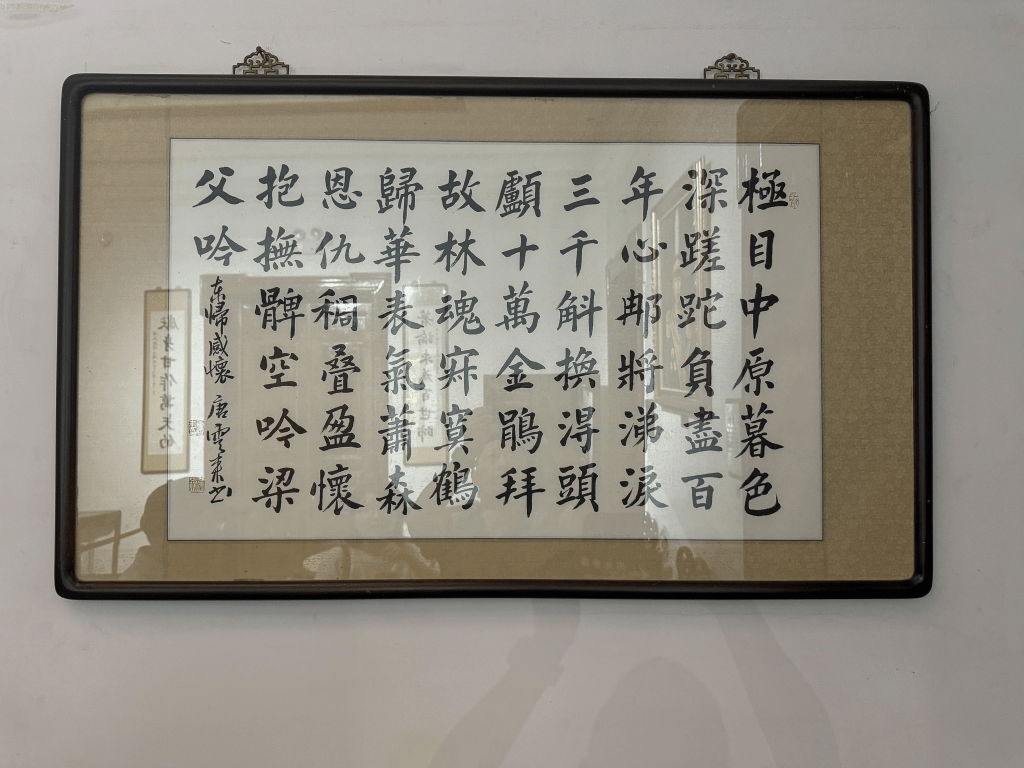 極目中原暮色
深蹉跎負盡百
年心那將涕淚
三千斛換得頭
顱十萬金鵑拜
故林魂寂寞鶴
歸華表氣蕭森
恩仇稠叠盈懷
抱撫髀空吟梁
父吟
东歸感懷 唐雲来书